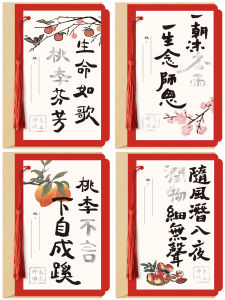 生命如歌
桃李芬芳
一朝沐杏雨
一生念師恩
桃李不言
下自成蹊
隨風潛入夜
潤物細無聲